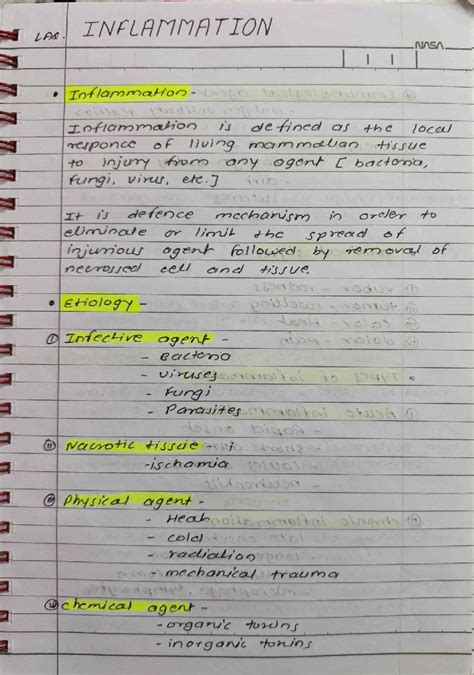 LAQ. INFLAMMATION
NASA
• Inflammation -
Inflammation is defined as the local
responce of living mammalian tissue
to injury from any agent [ bacteria,
fungi, virus, etc.]
It is defence mechanism in order to
eliminate or limit the spread of
injurious agent followed by removal of
necrosed cell and tissue.
• Etiology -
① Infective agent -
- Bacteria
- viruses
- Fungi
- Parasites
⑪ Nacrotic tissue -
- ischamia
⑩ Physical agent -
- Heat
- cold
- radiation
- mechanical trauma
chemical agent -
- organic toxins
- inorganic toxins